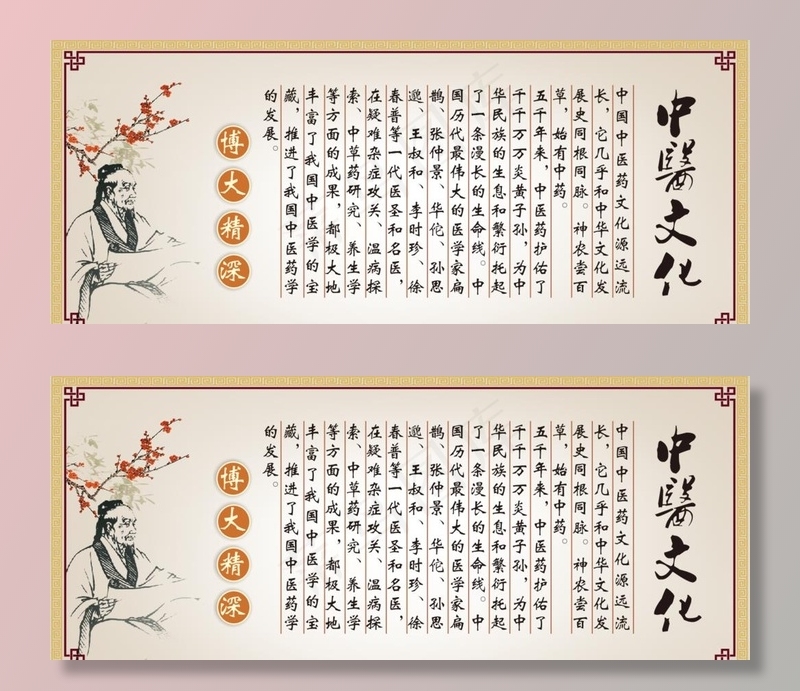 中醫文化
中国中医药文化源远流
长，它几乎和中华文化发
展史同根同脉。神农尝百
草，始有中药。
五千年来，中医药护佑了
千千万万炎黄子孙，为中
华民族的生息和繁衍托起
了一条漫长的生命线。中
国历代最伟大的医学家扁
鹊、张仲景、华佗、孙思
邈、王叔和、李时珍、徐
春普等一代医圣和名医，
在疑难杂症攻关、温病探
索、中草药研究、养生学
等方面的成果，都极大地
丰富了我国中医学的宝
藏，推进了我国中医药学
的发展。
博大精深
中醫文化
中国中医药文化源远流
长，它几乎和中华文化发
展史同根同脉。神农尝百
草，始有中药。
五千年来，中医药护佑了
千千万万炎黄子孙，为中
华民族的生息和繁衍托起
了一条漫长的生命线。中
国历代最伟大的医学家扁
鹊、张仲景、华佗、孙思
邈、王叔和、李时珍、徐
春普等一代医圣和名医，
在疑难杂症攻关、温病探
索、中草药研究、养生学
等方面的成果，都极大地
丰富了我国中医学的宝
藏，推进了我国中医药学
的发展。
博大精深